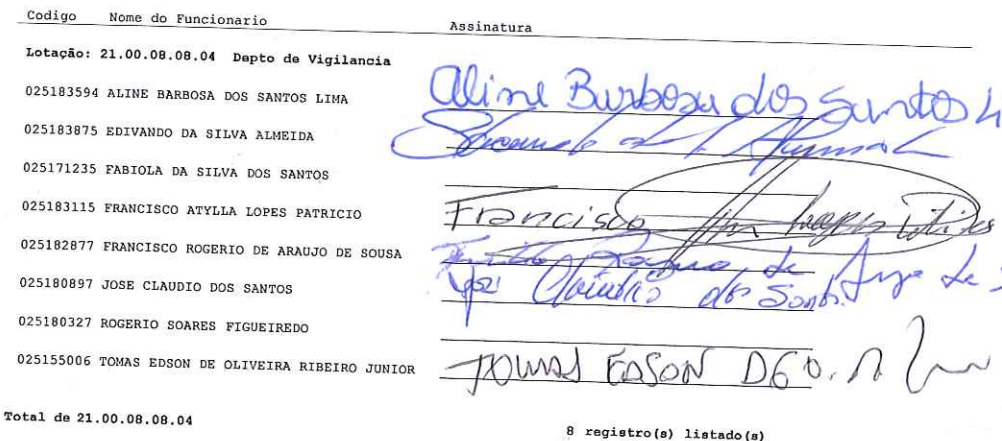 Codigo Nome do Funcionario Assinatura
Lotação: 21.00.08.08.04 Depto de Vigilancia
025183594 ALINE BARBOSA DOS SANTOS LIMA Aline Barbosa dos Santos Li
025183875 EDIVANDO DA SILVA ALMEIDA
025171235 FABIOLA DA SILVA DOS SANTOS
025183115 FRANCISCO ATYLLA LOPES PATRICIO Francisco
025182877 FRANCISCO ROGERIO DE ARAUJO DE SOUSA
025180897 JOSE CLAUDIO DOS SANTOS José Claudio dos Santos
025180327 ROGERIO SOARES FIGUEIREDO
025155006 TOMAS EDSON DE OLIVEIRA RIBEIRO JUNIOR TOMAS EDSON DE O. R
Total de 21.00.08.08.04 8 registro(s) listado(s)